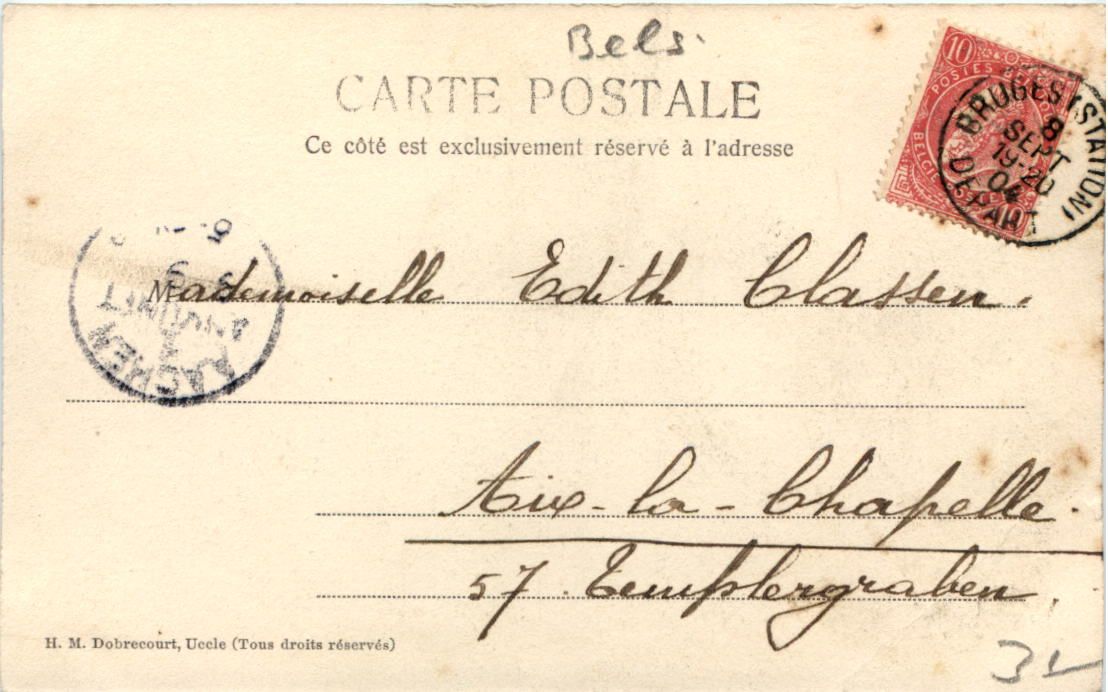 Bels.
CARTE POSTALE
Ce côté est exclusivement réservé à l'adresse
10
POSTES BELGIQUE
BELGIE
10
BRUGES (STATION)
8
SEPT
19-20
04
DEPART
AACHEN
1
Mademoiselle Edith Classen.
Aix-la-Chapelle.
57 Templergraben.
H. M. Dobrecourt, Uccle (Tous droits réservés)